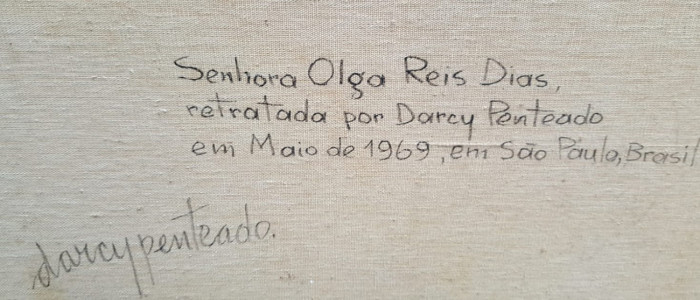 Senhora Olga Reis Dias,
retratada por Darcy Penteado
em Maio de 1969, em São Paulo, Brasil
darcypenteado.